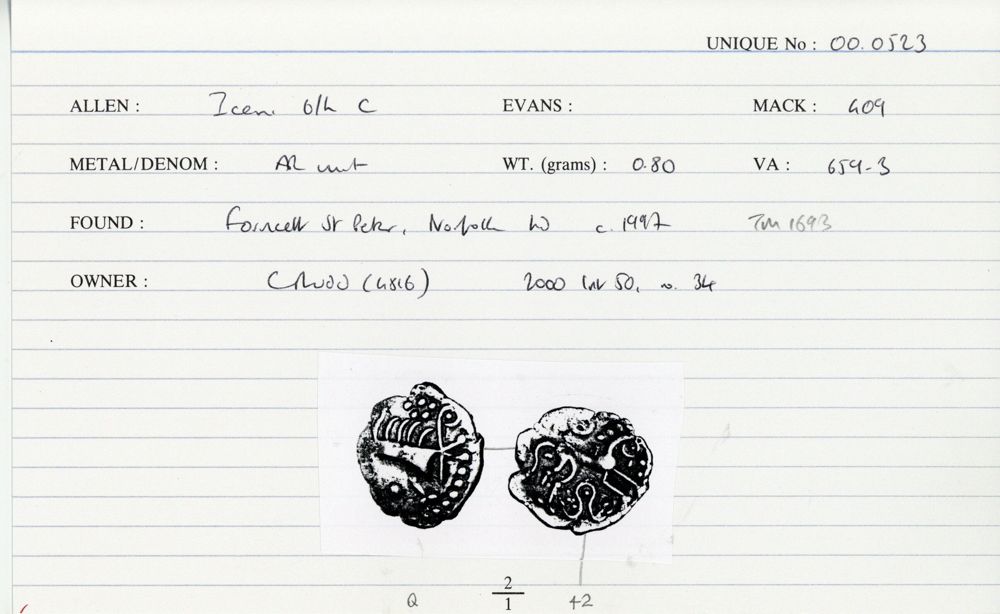 UNIQUE No : 00.0523
ALLEN : Iceni b/h C EVANS : MACK : 409
METAL/DENOM : AR unit WT. (grams) : 0.80 VA : 659-3
FOUND : Forncett St Peter, Norfolk c. 1997 TM 1693
OWNER : C Rudd (4816) 2000 list 50, no. 34
2
Q 1 42